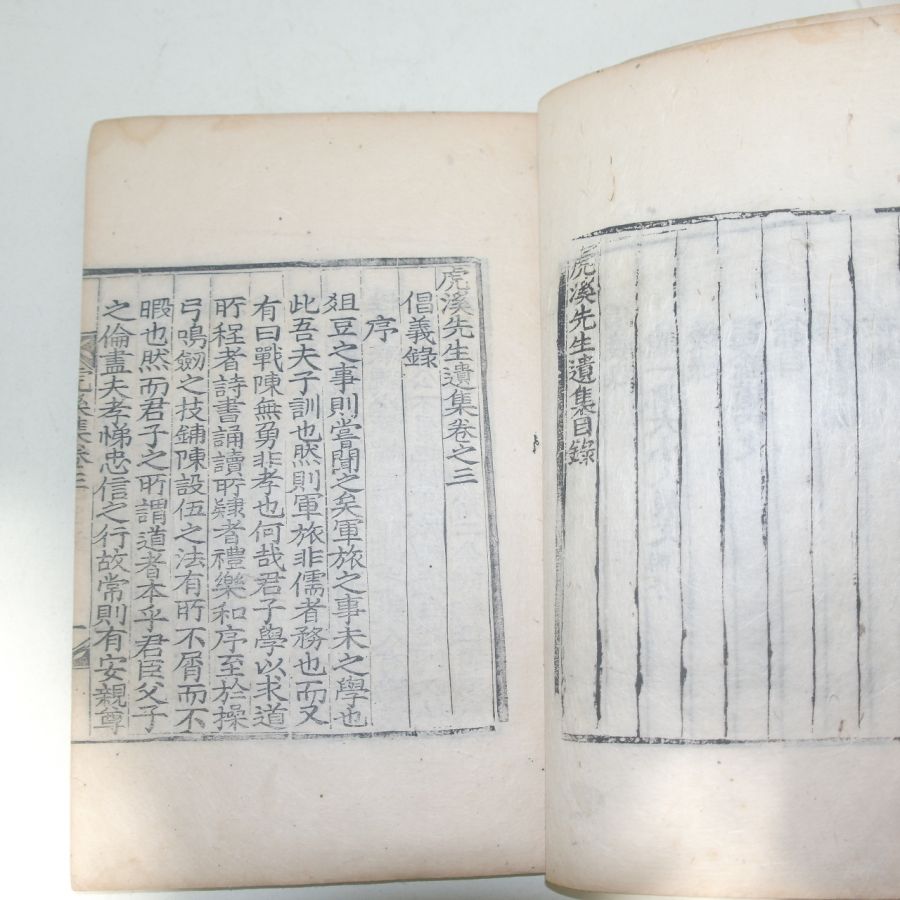 虎溪先生遺集目錄
虎溪先生遺集卷之三
倡義錄
序
俎豆之事則嘗聞之矣軍旅之事未之學也
此吾夫子訓也然則軍旅非儒者務也而又
有曰戰陳無勇非孝也何哉君子學以求道
所程者詩書誦讀所隷者禮樂和序至於操
弓鳴劒之技鋪陳設伍之法有所不屑而不
暇也然而君子之所謂道者本乎君臣父子
之倫盡夫孝悌忠信之行故常則有安親尊
虎溪集卷三
一